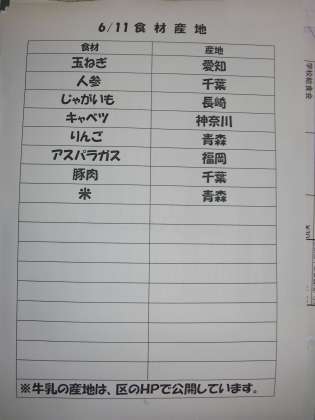 6/11食材産地
食材 産地
玉ねぎ 愛知
人参 千葉
じゃがいも 長崎
キャベツ 神奈川
りんご 青森
アスパラガス 福岡
豚肉 千葉
米 青森
※牛乳の産地は、区のHPで公開しています。
学校給食会